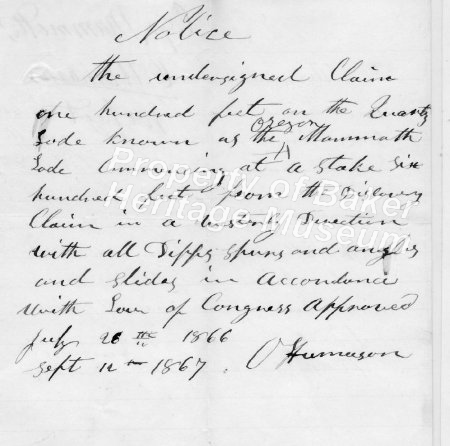 Notice
the undersigned Claim
one hundred feet on the Quartz
Oregon
Lode known as the Mammoth
Lode Commencing at a Stake Six
hundred feet from the Discovery
Claim in a Westerly Direction
with all Dipps Spurs and angles
and slides in accordance
With Law of Congress Approved
July 26 1866
Sept 12th 1867. O Humason
Property of Baker
Heritage Museum